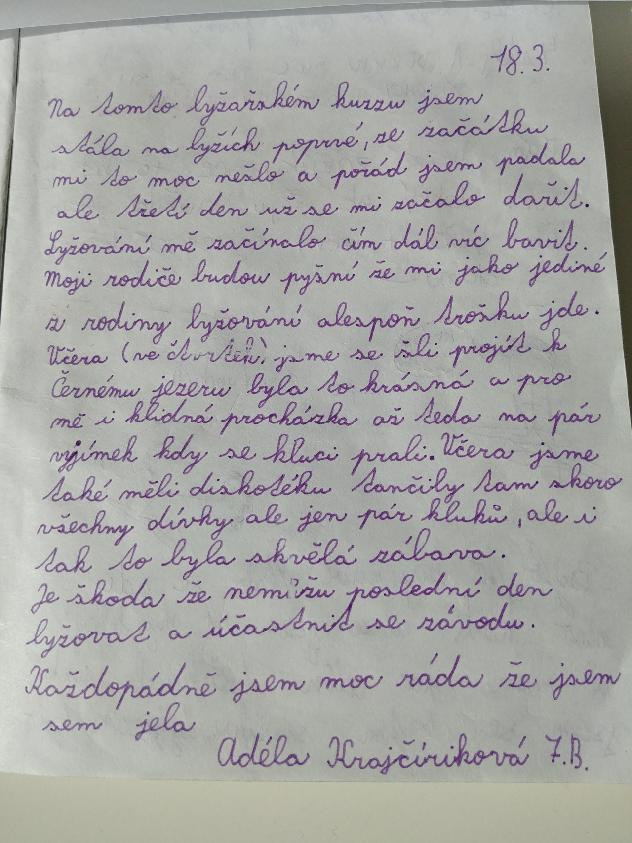 18.3.
Na tomto lyžařském kurzu jsem
stála na lyžích poprvé, ze začátku
mi to moc nešlo a pořád jsem padala
ale třetí den už se mi začalo dařit.
Lyžování mě začínalo čím dál víc bavit.
Moji rodiče budou pyšní že mi jako jediné
z rodiny lyžování alespoň trošku jde.
Včera (ve čtvrtek) jsme se šli projít k
Černému jezeru byla to krásná a pro
mě i klidná procházka až teda na pár
vyjímek kdy se kluci prali. Včera jsme
také měli diskotéku tančily tam skoro
všechny dívky ale jen pár kluků, ale i
tak to byla skvělá zábava.
Je škoda že nemůžu poslední den
lyžovat a účastnit se závodu.
Každopádně jsem moc ráda že jsem
sem jela
Adéla Krajčíriková 7.B.